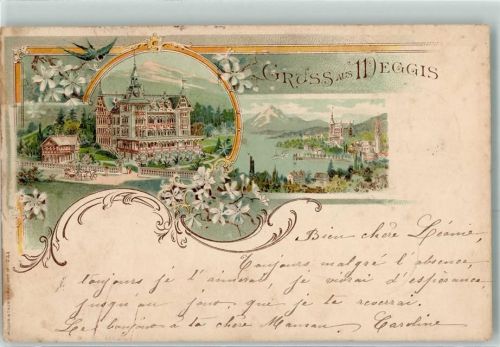 GRUSS AUS WEGGIS
Bien chère Léonie,
Toujours malgré l'absence,
toujours je t'aimerai, je vivrai d'espérance
jusqu'au jour que je te reverrai.
Les bonjour à ta chère Maman. Caroline